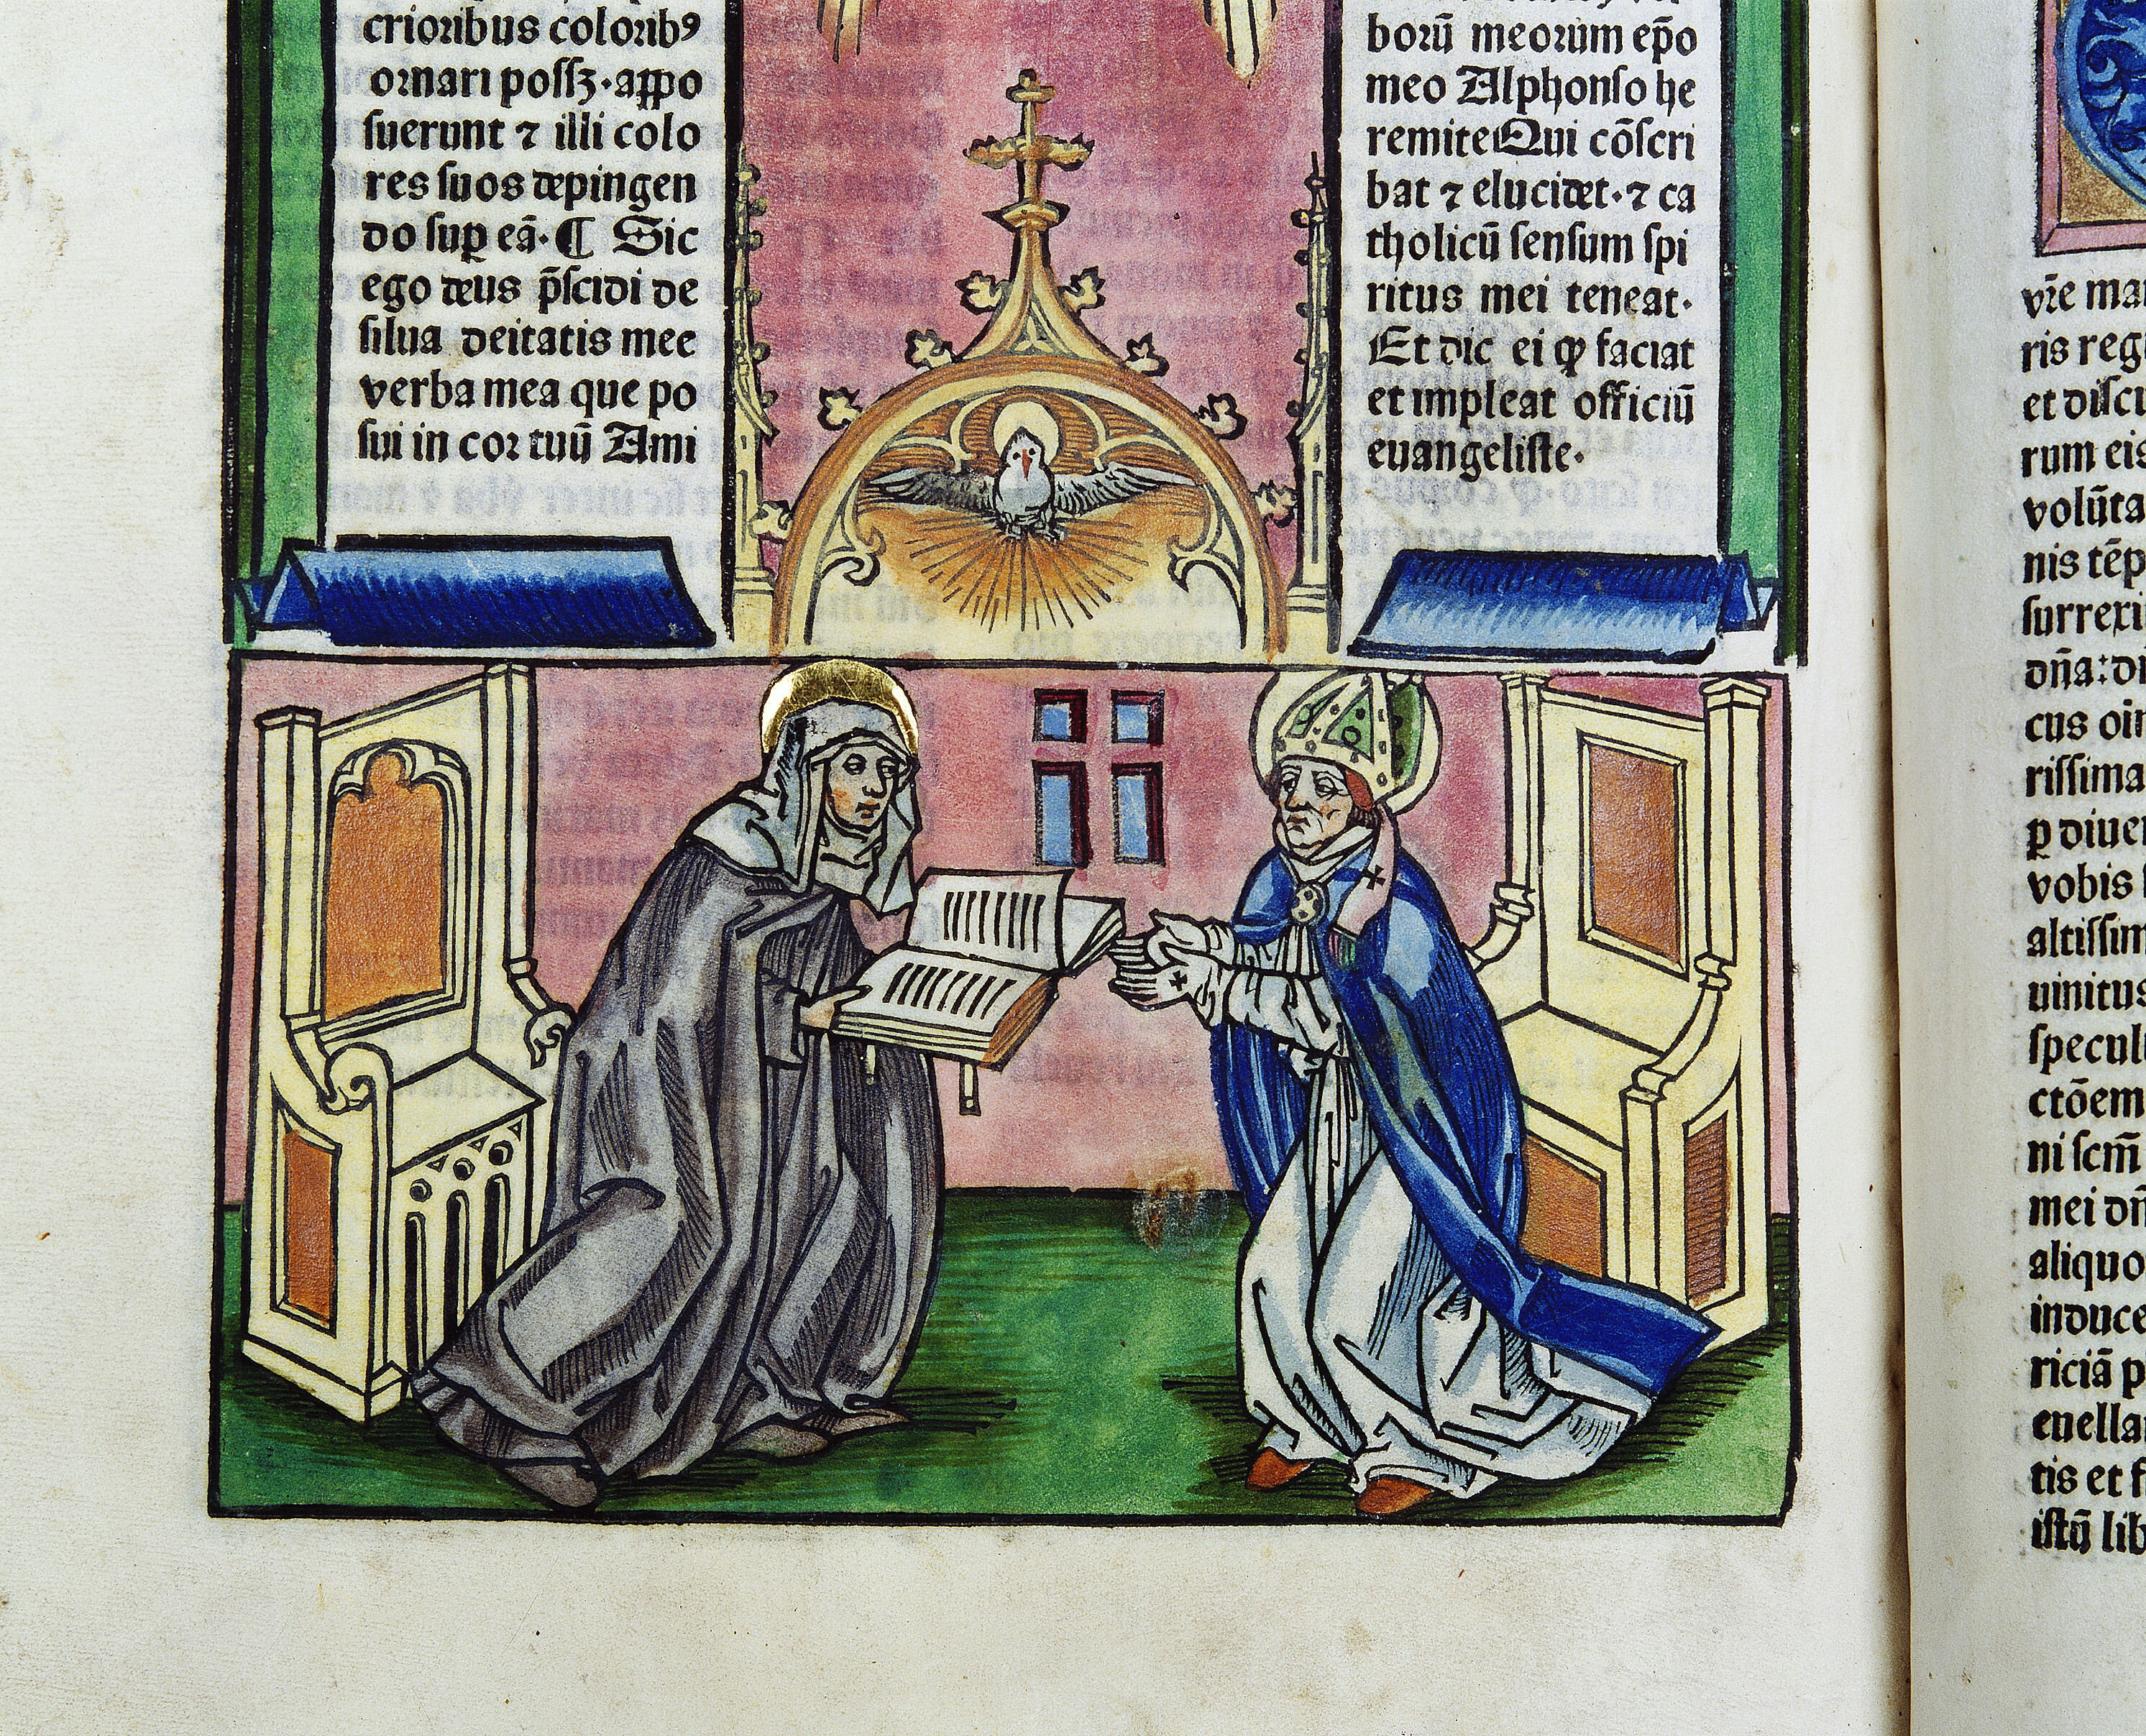 crioribus coloribꝰ
ornari possꝫ · appo
suerunt ⁊ illi colo
res suos depingen
do suꝑ eã · ¶ Sic
ego deus p̃scidi de
silua deitatis mee
verba mea que po
sui in cor tuũ Ami
borũ meorum ep̃o
meo Alphonso he
remite Qui cõscri
bat ⁊ elucidet · ⁊ ca
tholicũ sensum spi
ritus mei teneat ·
Et dic ei ꝙ faciat
et impleat officiũ
euangeliste ·
vr̃e mat
ris reg
et discu
rum eis
volũta
nis tẽp
surrexi
dña : di
cus oi
rissima
ꝑ diuer
vobis
altissim
uinitus
specul
ctõem
ni scm̃
mei dñ
aliquo
induce
riciã p
euella
tis et f
istũ lib